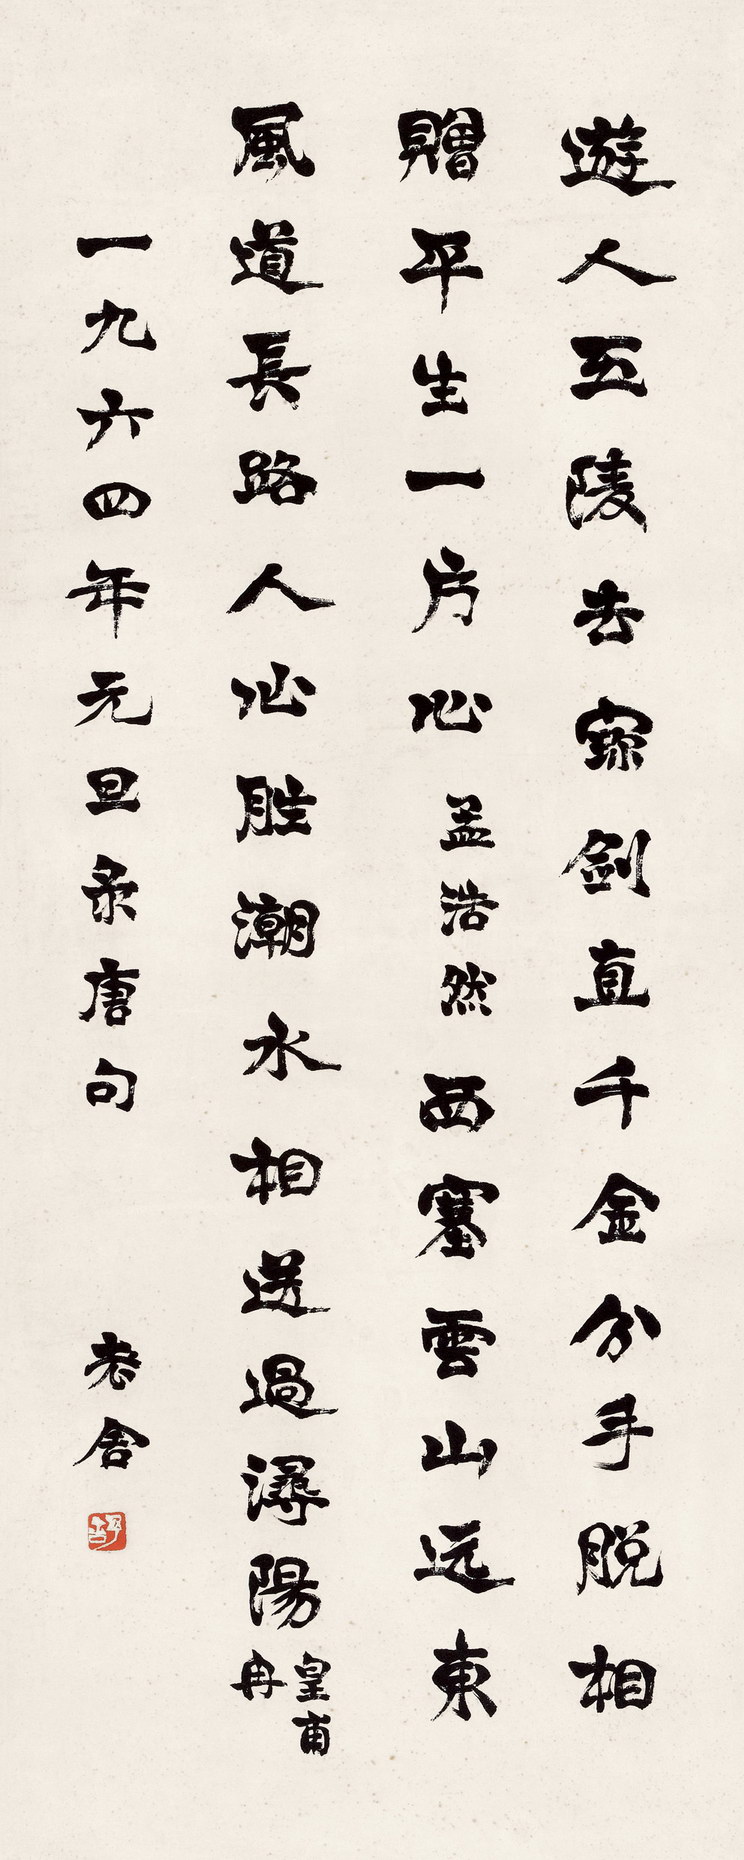 遊人五陵去寳剑直千金分手脱相
贈平生一片心孟浩然西塞雲山远東
風道長路人心胜潮水相送過潯陽皇甫冉
一九六四年元旦录唐句
老舍
舒